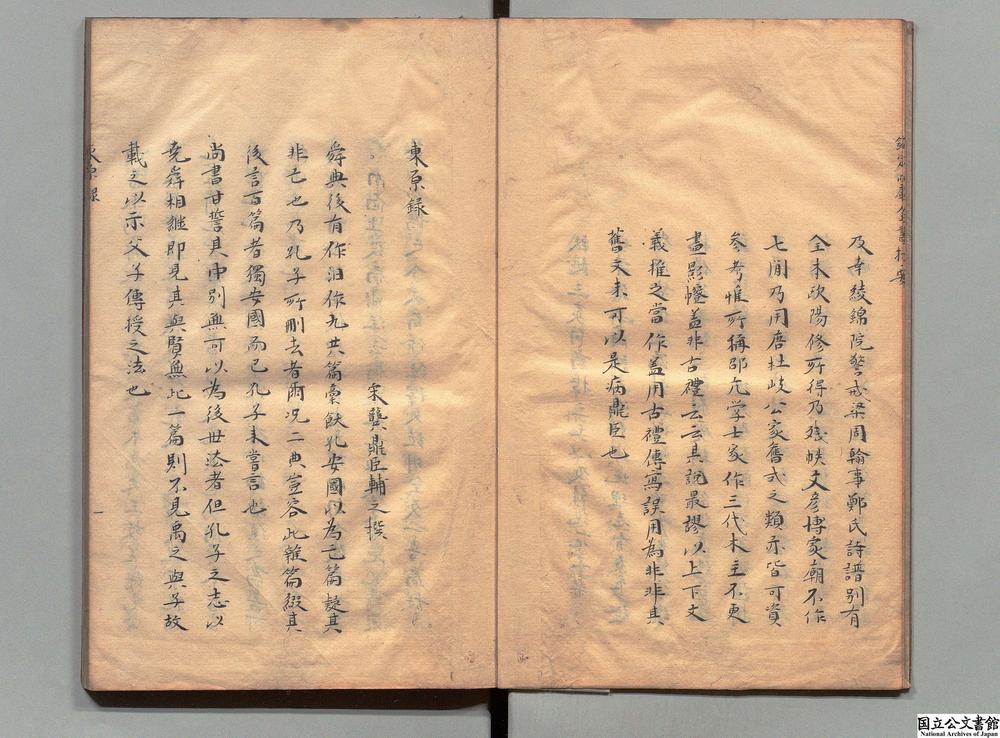 及李綾錦院警戒梁周翰事鄭氏詩譜別有
全本歐陽修所得乃殘帙文彦博家廟不作
七間乃用唐杜岐公家舊式之類亦皆可資
參考惟所稱邵亢学士家作三代木主不更
畫影幛盖非古禮云云其說最謬以上下文
義推之當作盖用古禮傳寫誤用為非非其
舊文未可以是病鼎臣也
東原録
宋龔鼎臣輔之撰
舜典後有作汨作九共篇稾飫孔安國以為亡篇疑其
非亡也乃孔子所刪去者爾况二典豈容此雜篇綴其
後言百篇者獨安國而已孔子未嘗言也
尚書甘誓其中別無可以為後世法者但孔子之志以
堯舜相繼即見其與賢無此一篇則不見禹之與子故
載之以示父子傳授之法也
東原録
一
国立公文書館
National Archives of Japan